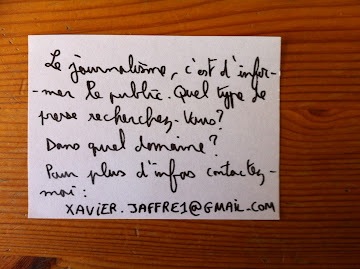 Le journalisme, c'est d'infor-
-mer le public. Quel type de
presse recherchez-vous?
Dans quel domaine?
Pour plus d'infos contactez-
moi:
XAVIER.JAFFRE1@GMAIL.COM